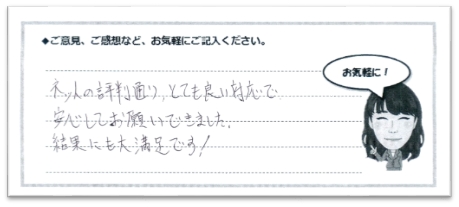 ◆ご意見、ご感想など、お気軽にご記入ください。
お気軽に！
ネットの評判通り、とても良い対応で
安心してお願いできました。
結果にも大満足です！